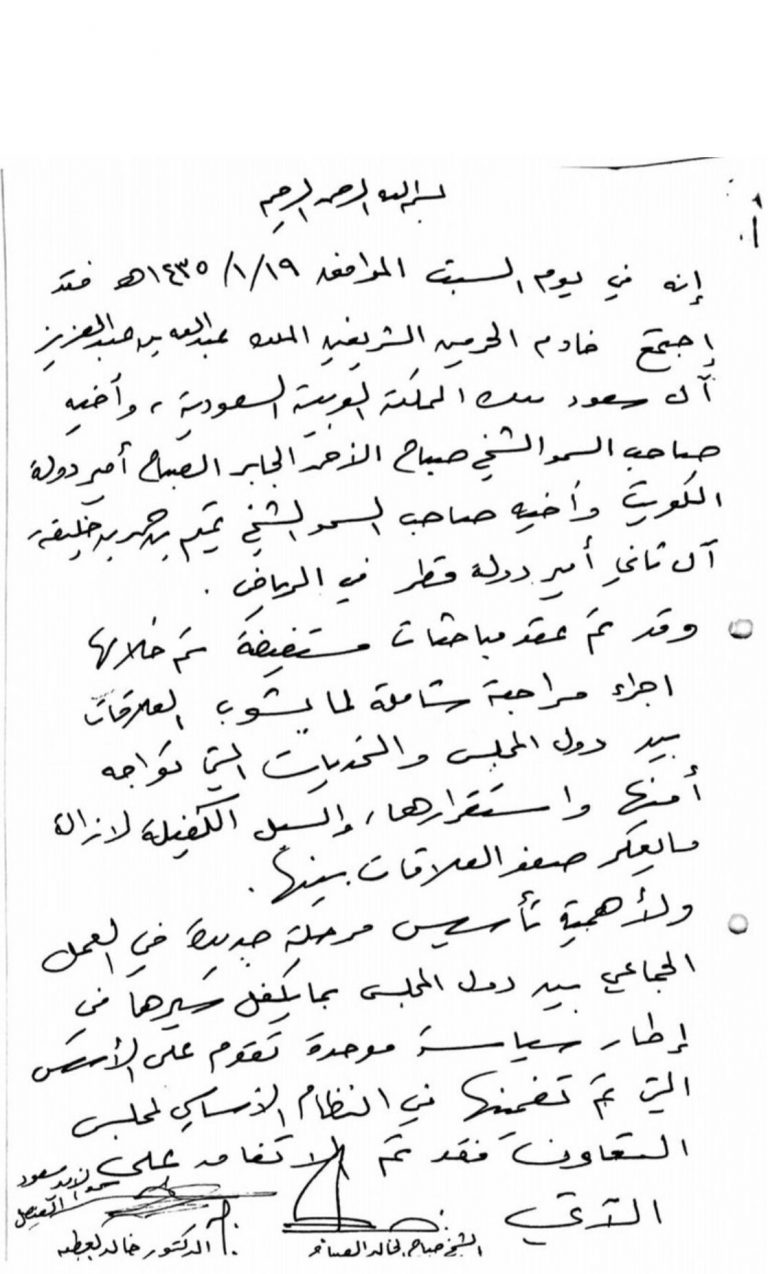 بسم الله الرحمن الرحيم
إنه في يوم السبت الموافق ١٤٣٥/١/١٩هـ فقد
إجتمع خادم الحرمين الشريفين الملك عبدالله بن عبدالعزيز
آل سعود ملك المملكة العربية السعودية ، وأخيه
صاحب السمو الشيخ صباح الأحمد الجابر الصباح أمير دولة
الكويت وأخيه صاحب السمو الشيخ تميم بن حمد بن خليفة
آل ثاني أمير دولة قطر في الرياض .
وقد تم عقد مباحثات مستفيضة تم خلالها
اجراء مراجعة شاملة لما يشوب العلاقات
بين دول المجلس والتحديات التي تواجه
أمنها واستقرارها، والسبل الكفيلة لازالة
ما يعكر صفو العلاقات بينها .
ولأهمية تأسيس مرحلة جديدة في العمل
الجماعي بين دول المجلس بما يكفل سيرها في
إطار سياسة موحدة تقوم على الأسس
التي تم تضمينها في النظام الأساسي لمجلس
التعاون فقد تم الاتفاق على
الآتي
سعود الفيصل
الشيخ صباح الخالد الصباح
الدكتور خالد العطية